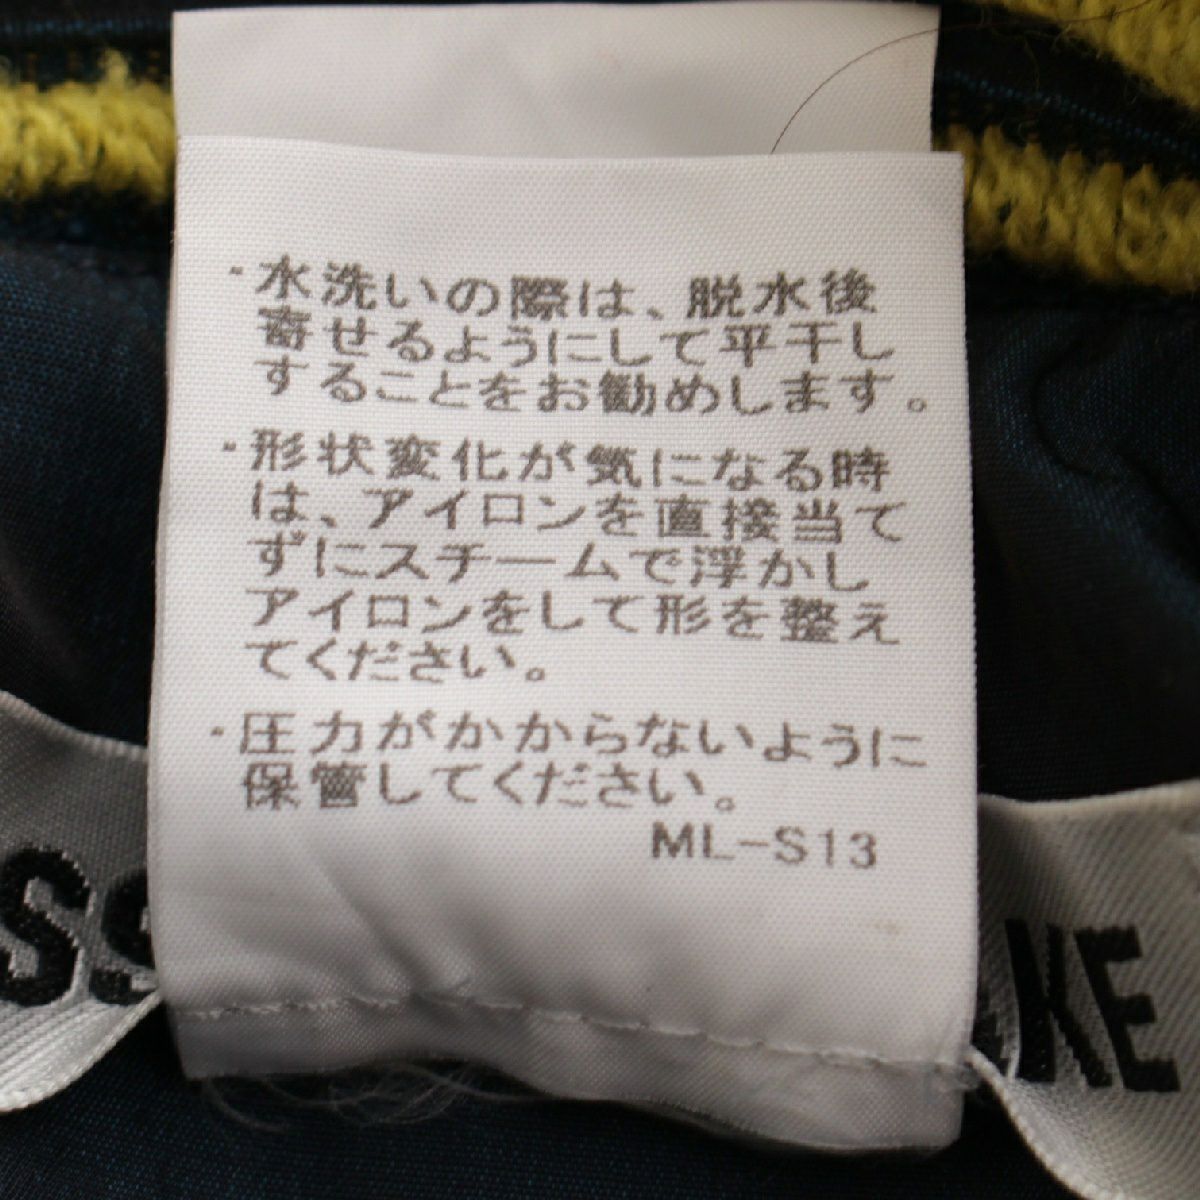 ・水洗いの際は、脱水後
寄せるようにして平干し
することをお勧めします。
・形状変化が気になる時
は、アイロンを直接当て
ずにスチームで浮かし
アイロンをして形を整え
てください。
・圧力がかからないように
保管してください。
ML-S13